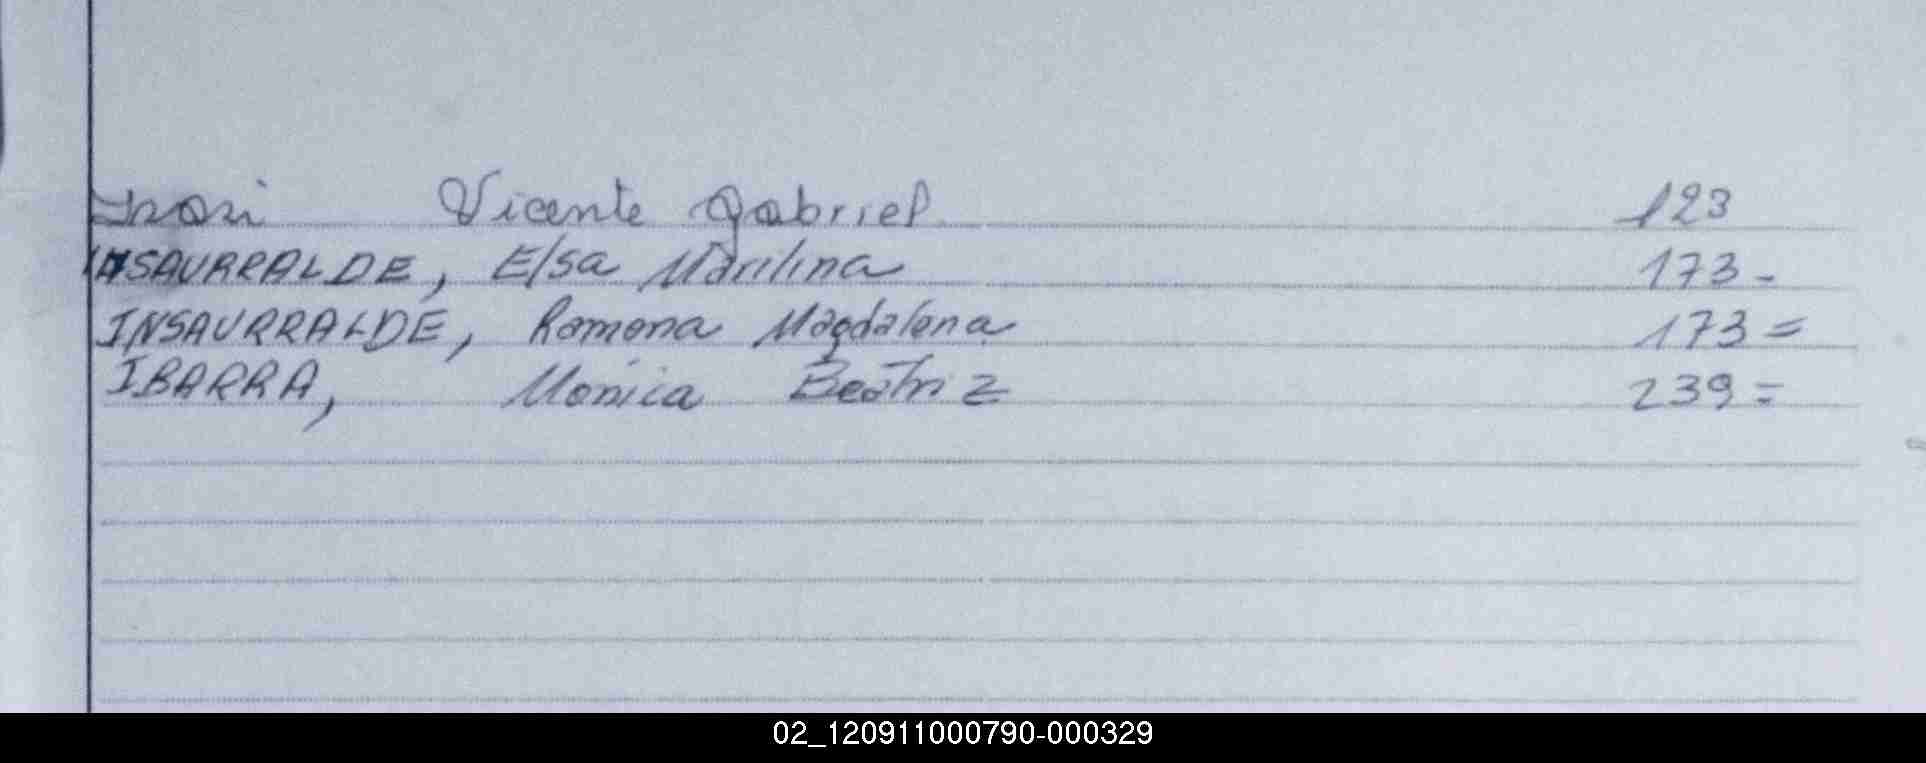 Vicente Gabriel 123
INSAURRALDE, Elsa Marilina 173-
INSAURRALDE, Ramona Magdalena 173=
IBARRA, Monica Beatriz 239=
02_120911000790-000329